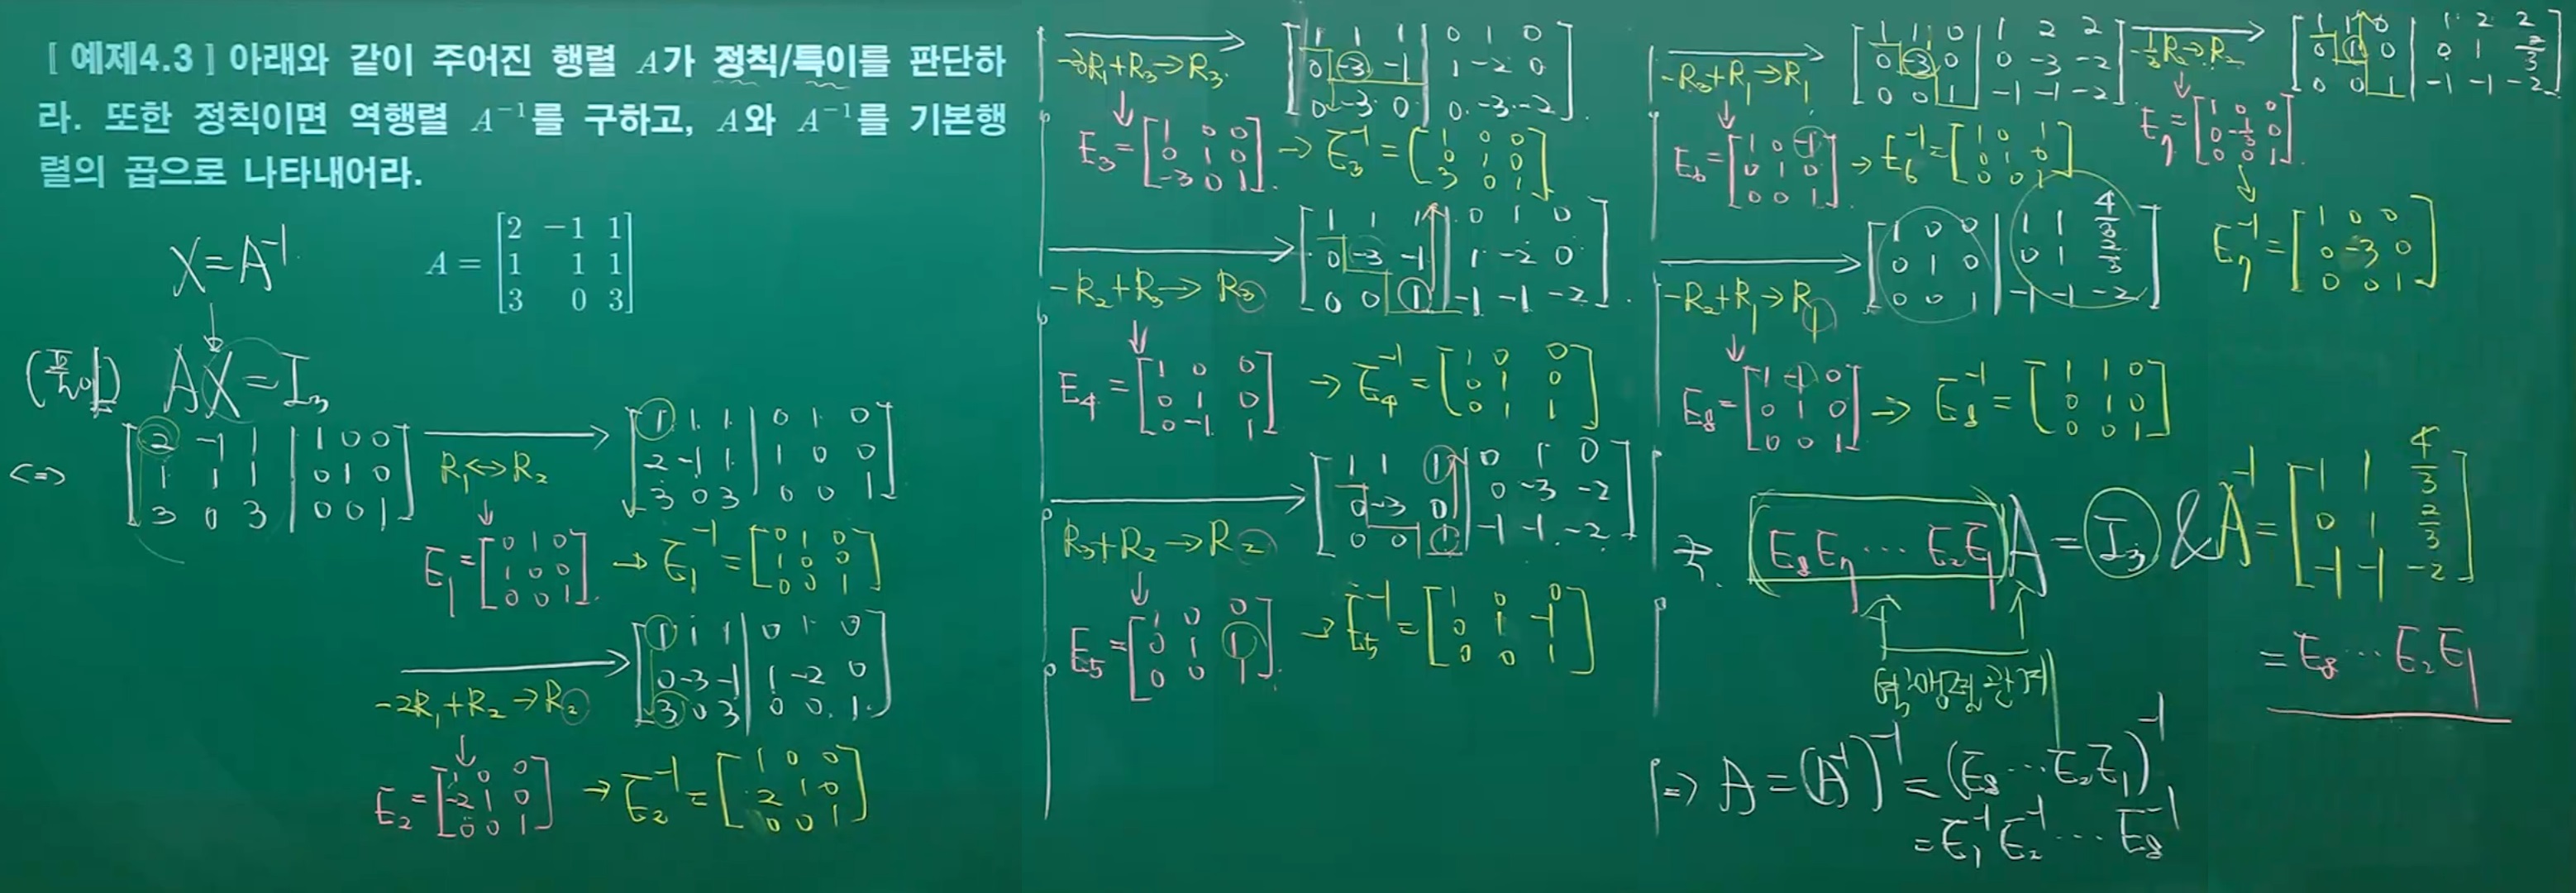 [ 예제4.3 ] 아래와 같이 주어진 행렬 A가 정칙/특이를 판단하
라. 또한 정칙이면 역행렬 A⁻¹를 구하고, A와 A⁻¹를 기본행
렬의 곱으로 나타내어라.
A = [2 −1 1
1 1 1
3 0 3]
X = A⁻¹
(풀이) AX = I₃
<=> [2 -1 1 | 1 0 0
1 1 1 | 0 1 0
3 0 3 | 0 0 1]
R₁ <-> R₂
[1 1 1 | 0 1 0
2 -1 1 | 1 0 0
3 0 3 | 0 0 1]
E₁ = [0 1 0
1 0 0
0 0 1]
→ E₁⁻¹ = [0 1 0
1 0 0
0 0 1]
-2R₁+R₂ → R₂
[1 1 1 | 0 1 0
0 -3 -1 | 1 -2 0
3 0 3 | 0 0 1]
E₂ = [1 0 0
-2 1 0
0 0 1]
→ E₂⁻¹ = [1 0 0
2 1 0
0 0 1]
-3R₁+R₃ → R₃
[1 1 1 | 0 1 0
0 -3 -1 | 1 -2 0
0 -3 0 | 0 -3 -2]
E₃ = [1 0 0
0 1 0
-3 0 1]
→ E₃⁻¹ = [1 0 0
0 1 0
3 0 1]
-R₂+R₃ → R₃
[1 1 1 | 0 1 0
0 -3 -1 | 1 -2 0
0 0 1 | -1 -1 -2]
E₄ = [1 0 0
0 1 0
0 -1 1]
→ E₄⁻¹ = [1 0 0
0 1 0
0 1 1]
R₃+R₂ → R₂
[1 1 1 | 0 1 0
0 -3 0 | 0 -3 -2
0 0 1 | -1 -1 -2]
E₅ = [1 0 0
0 1 1
0 0 1]
→ E₅⁻¹ = [1 0 0
0 1 -1
0 0 1]
-R₃+R₁ → R₁
[1 1 0 | 1 2 2
0 -3 0 | 0 -3 -2
0 0 1 | -1 -1 -2]
E₆ = [1 0 -1
0 1 0
0 0 1]
→ E₆⁻¹ = [1 0 1
0 1 0
0 0 1]
-1/3 R₂ → R₂
[1 1 0 | 1 2 2
0 1 0 | 0 1 2/3
0 0 1 | -1 -1 -2]
E₇ = [1 0 0
0 -1/3 0
0 0 1]
→ E₇⁻¹ = [1 0 0
0 -3 0
0 0 1]
-R₂+R₁ → R₁
[1 0 0 | 1 1 4/3
0 1 0 | 0 1 2/3
0 0 1 | -1 -1 -2]
E₈ = [1 -1 0
0 1 0
0 0 1]
→ E₈⁻¹ = [1 1 0
0 1 0
0 0 1]
즉. E₈E₇ ⋯ E₂E₁ A = I₃ & A⁻¹ = [1 1 4/3
0 1 2/3
-1 -1 -2]
= E₈ ⋯ E₂E₁
역행렬 관계
=> A = (A⁻¹)⁻¹ = (E₈ ⋯ E₂E₁)⁻¹
= E₁⁻¹ E₂⁻¹ ⋯ E₈⁻¹